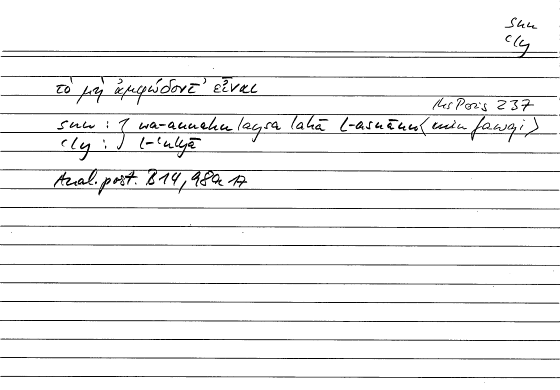 snn
ʿly
τὸ μὴ ἀμφώδοντ’ εἶναι
Ms Paris 237
snn : } wa-annahu laysa lahā l-asnānu ⟨min fawqi⟩
ʿly : } l-ʿulyā
Anal. post. B 14, 98a 17